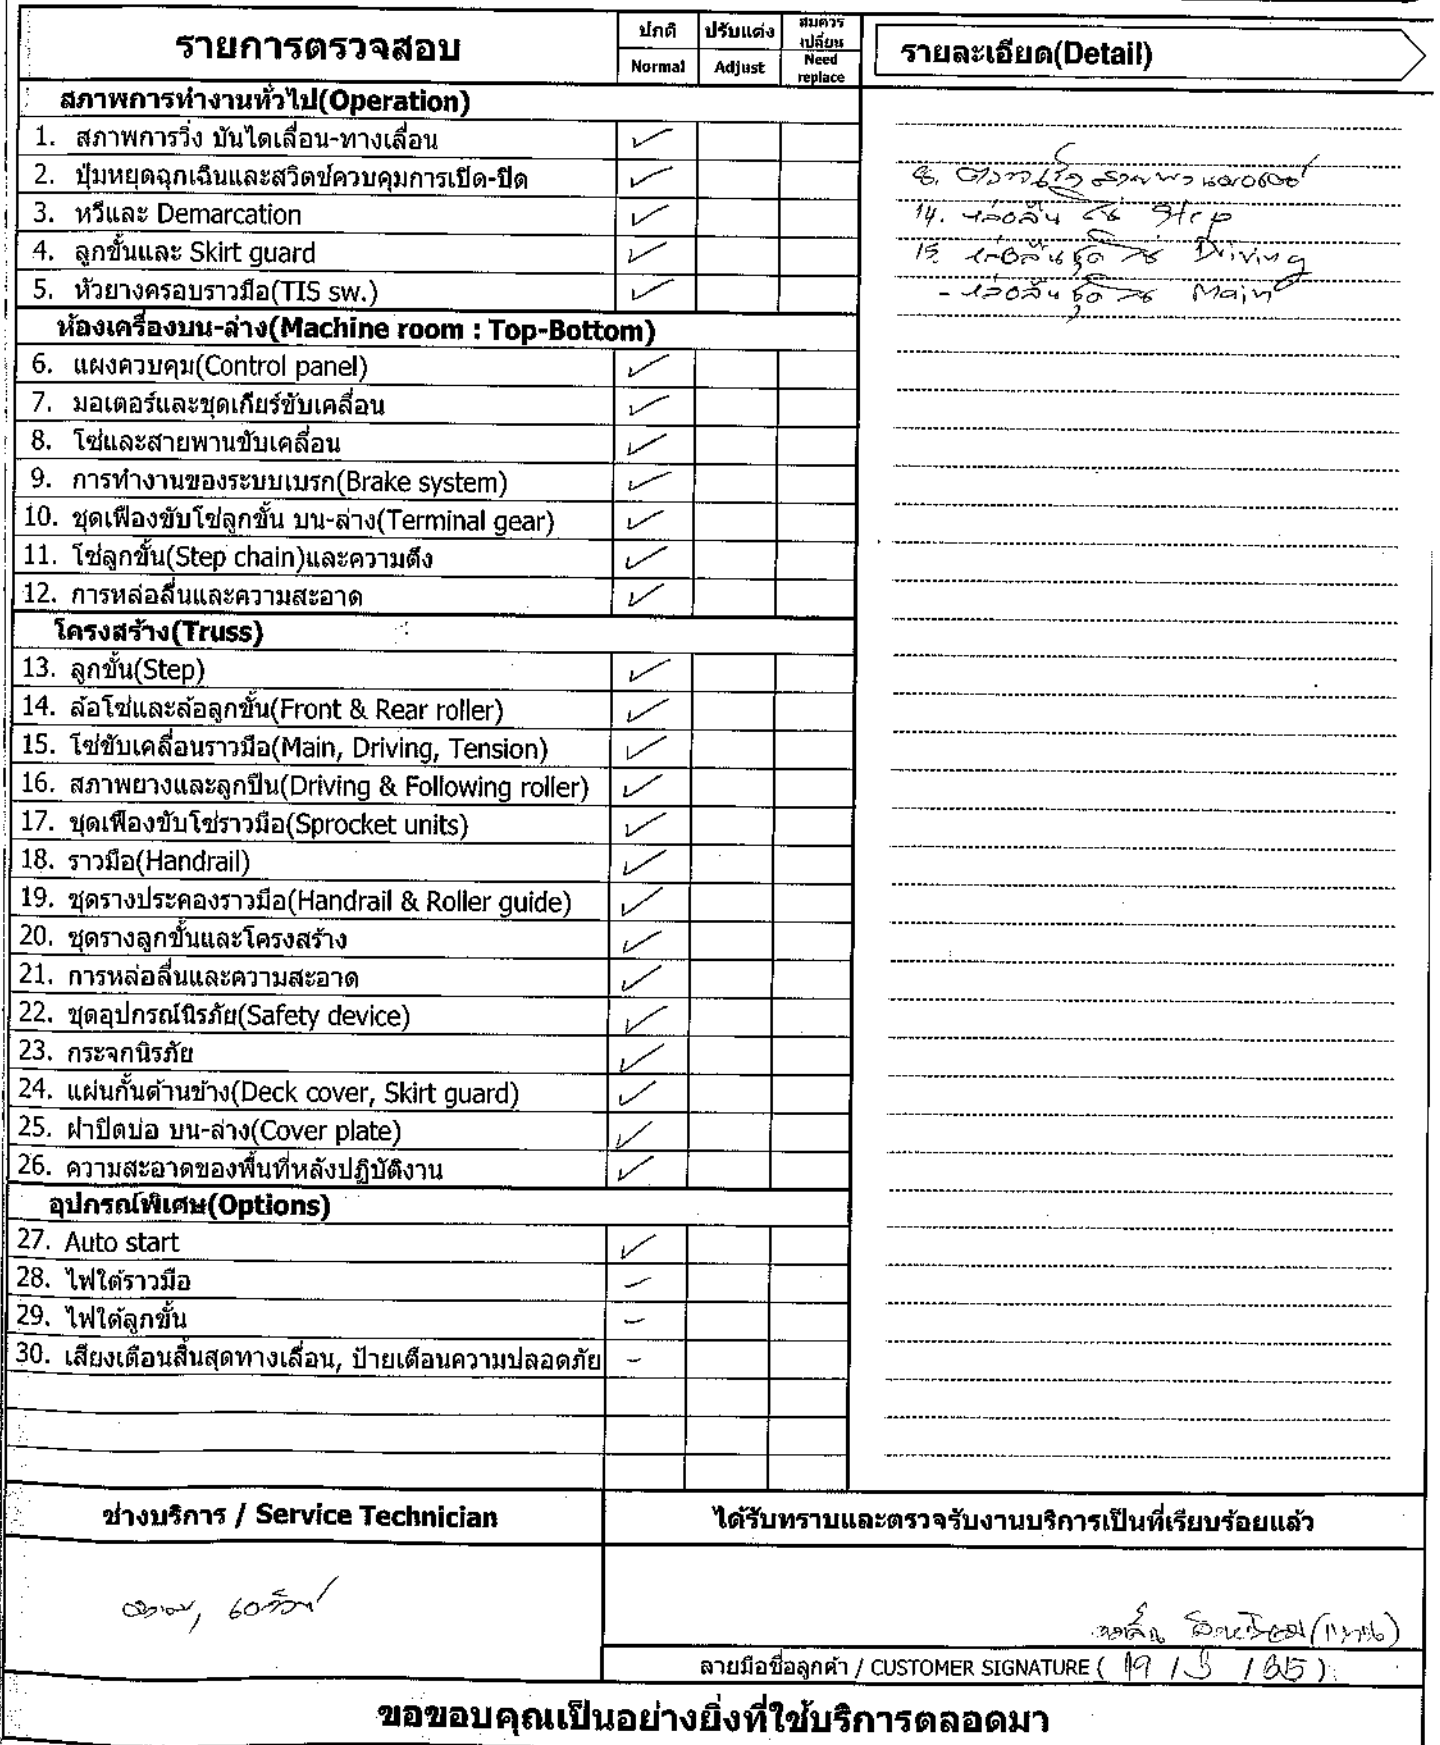 รายการตรวจสอบ
ปกติ
Normal
ปรับแต่ง
Adjust
สมควร
เปลี่ยน
Need
replace
รายละเอียด(Detail)
สภาพการทำงานทั่วไป(Operation)
1. สภาพการวิ่ง บันไดเลื่อน-ทางเลื่อน
2. ปุ่มหยุดฉุกเฉินและสวิตช์ควบคุมการเปิด-ปิด
3. หวีและ Demarcation
4. ลูกขั้นและ Skirt guard
5. หัวยางครอบราวมือ(TIS sw.)
8. สายพานมอเตอร์
14. หล่อลื่น โซ่ Step
15. หล่อลื่นชุด โซ่ Driving
- หล่อลื่นชุด โซ่ Main
ห้องเครื่องบน-ล่าง(Machine room : Top-Bottom)
6. แผงควบคุม(Control panel)
7. มอเตอร์และชุดเกียร์ขับเคลื่อน
8. โซ่และสายพานขับเคลื่อน
9. การทำงานของระบบเบรก(Brake system)
10. ชุดเฟืองขับโซ่ลูกขั้น บน-ล่าง(Terminal gear)
11. โซ่ลูกขั้น(Step chain)และความตึง
12. การหล่อลื่นและความสะอาด
โครงสร้าง(Truss)
13. ลูกขั้น(Step)
14. ล้อโซ่และล้อลูกขั้น(Front & Rear roller)
15. โซ่ขับเคลื่อนราวมือ(Main, Driving, Tension)
16. สภาพยางและลูกปืน(Driving & Following roller)
17. ชุดเฟืองขับโซ่ราวมือ(Sprocket units)
18. ราวมือ(Handrail)
19. ชุดรางประคองราวมือ(Handrail & Roller guide)
20. ชุดรางลูกขั้นและโครงสร้าง
21. การหล่อลื่นและความสะอาด
22. ชุดอุปกรณ์นิรภัย(Safety device)
23. กระจกนิรภัย
24. แผ่นกั้นด้านข้าง(Deck cover, Skirt guard)
25. ฝาปิดบ่อ บน-ล่าง(Cover plate)
26. ความสะอาดของพื้นที่หลังปฏิบัติงาน
อุปกรณ์พิเศษ(Options)
27. Auto start
28. ไฟใต้ราวมือ
29. ไฟใต้ลูกขั้น
30. เสียงเตือนสิ้นสุดทางเลื่อน, ป้ายเตือนความปลอดภัย
ช่างบริการ / Service Technician
ได้รับทราบและตรวจรับงานบริการเป็นที่เรียบร้อยแล้ว
ลายมือชื่อลูกค้า / CUSTOMER SIGNATURE ( 19 / 3 / 65 )
ขอขอบคุณเป็นอย่างยิ่งที่ใช้บริการตลอดมา